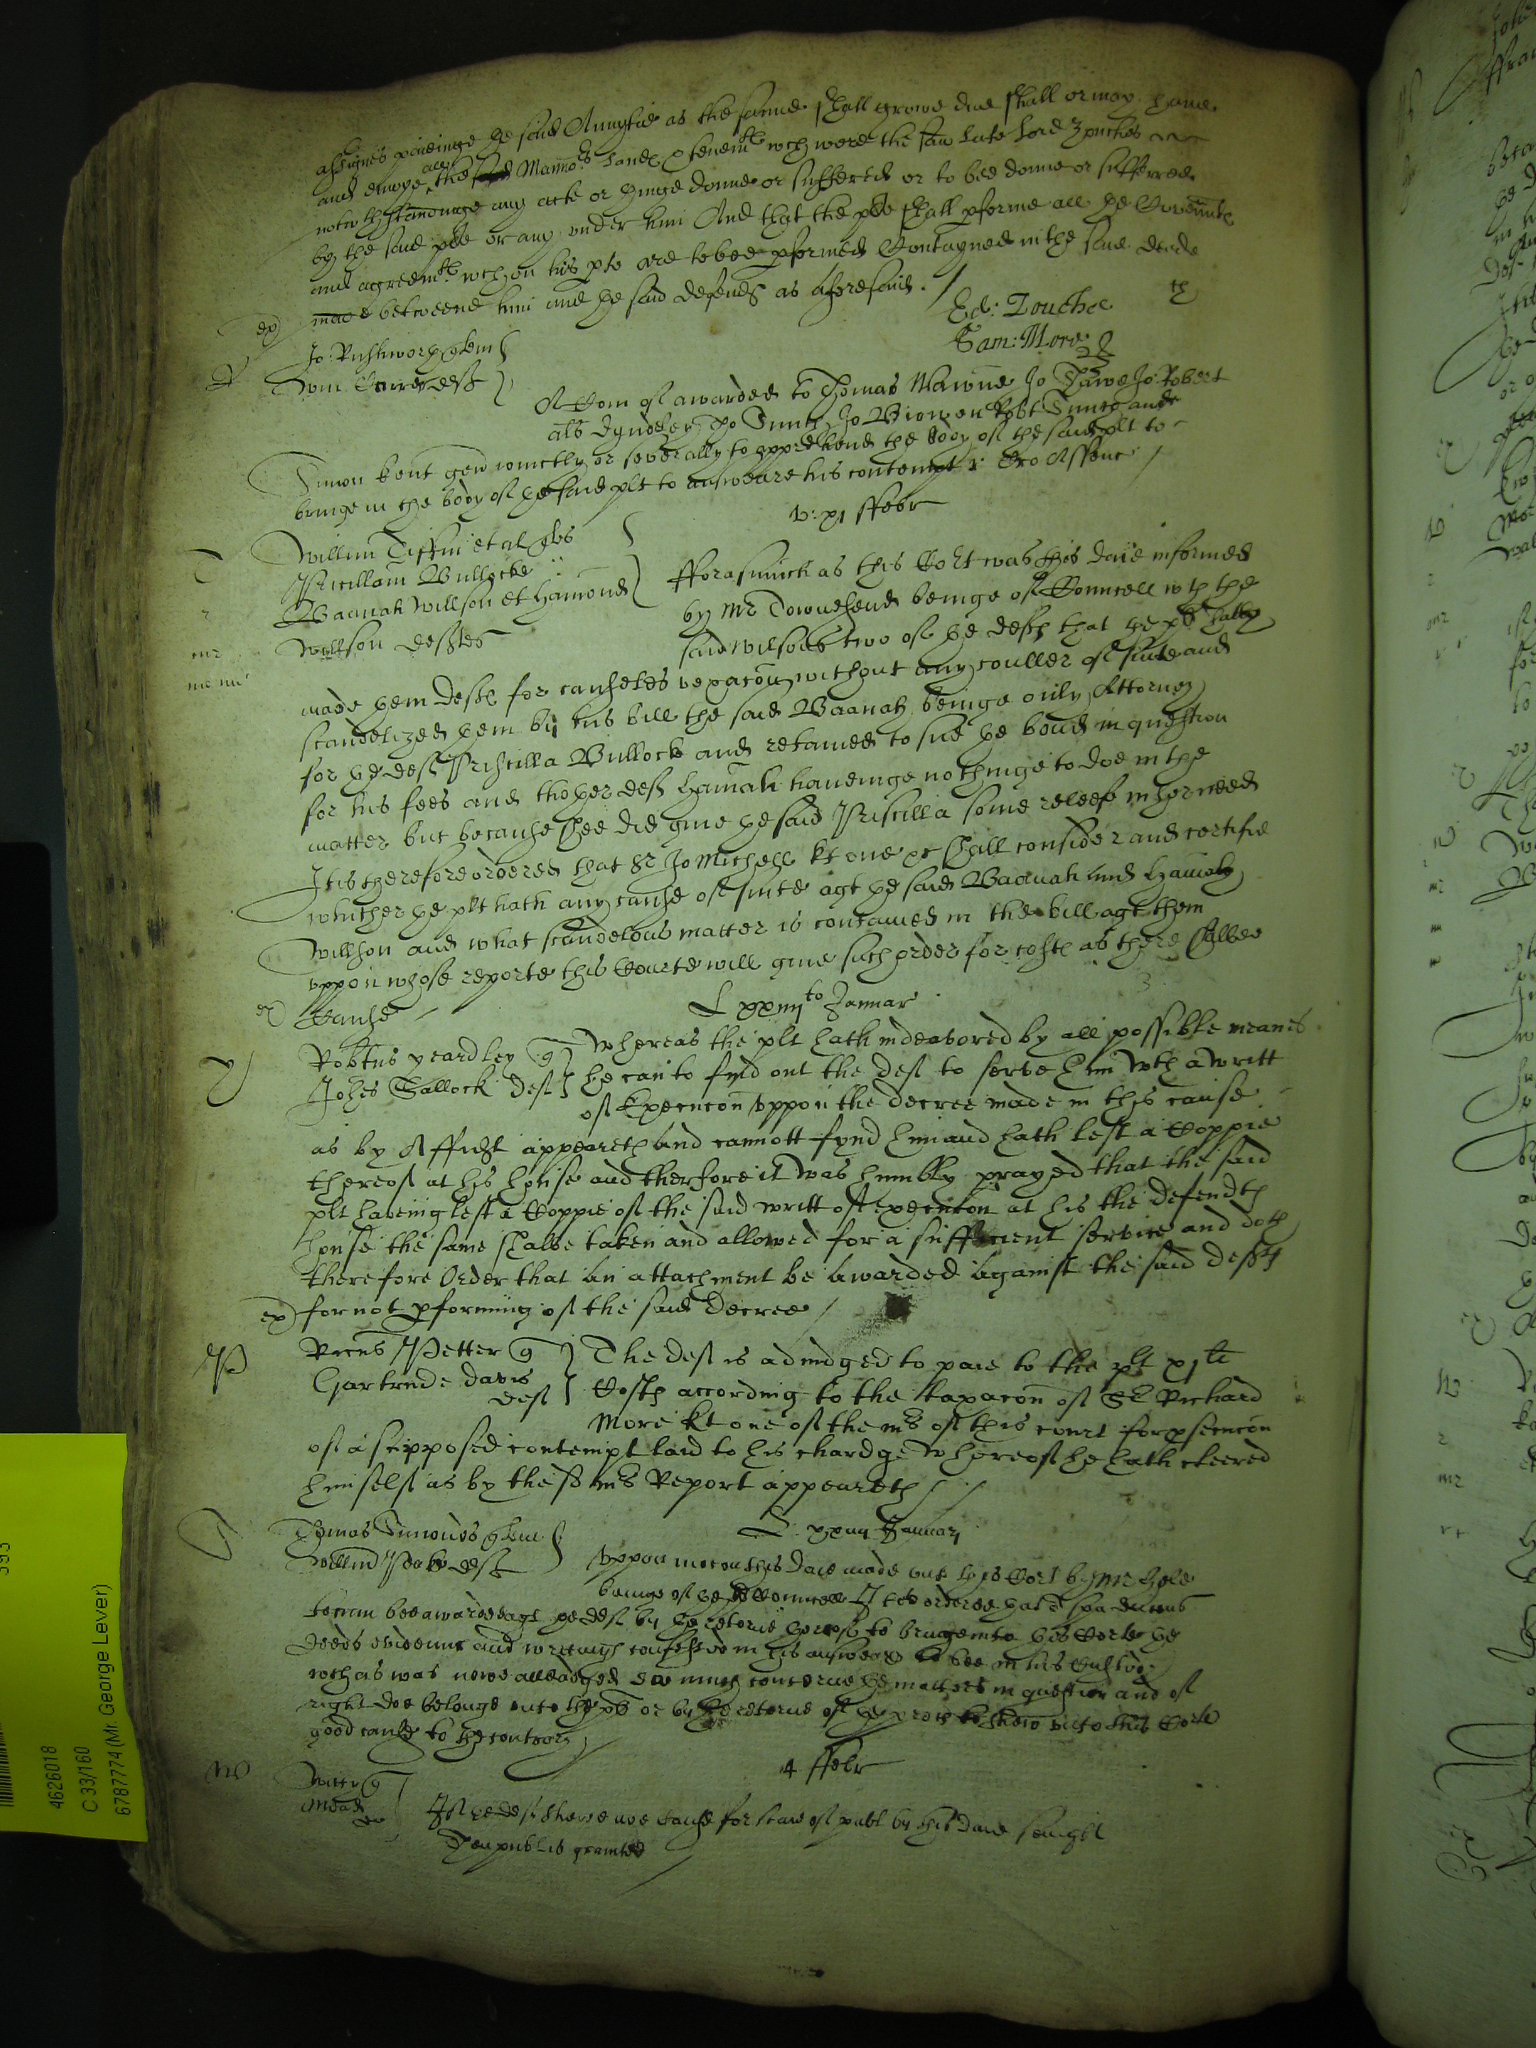 assignes paieinge the said Annytie as the same shall growe due shall or may have
and enioye all the said Mannors lands & tenemts wch were the said late Lord Zouches
notwthstandinge any acte or thinge donne or suffered or to bee donne or suffered
by the said plt or any under him And that the plt shall pforme all the Covennts
and agreemts wch on his pte are to bee pformed Contayned in the said deede
made betweene him and the said defends as aforesaid.
Ed: Zouche
Sam: More
ex
Jo: Rushworth
deft
A Com of awarded to Thomas Jo Robert
als Jo Smith Jo Robt Smith and
Simon Kent gen ioinctly or severally to apprehend the body of the said plt to
bringe in the body of the said plt to answeare his contempt
v: xj ffebr
T
Willim Tiffin et al qbs
Priscillam Bullocke
Baanah Willson et Hamond
Willson deftes
fforasmuch as this Cort was this daie informed
by Mr Towneshend beinge of Councell wth the
said Wilsons two of the defts that the plt hath
made them defts for causeles vexacon without any couller of suite and
scandelized them by his bill the said Baanah beinge onily Attorney
for the deft Priscilla Bullocke and retained to sue the bond in question
for his fees and thother deft Hannah haveinge nothinge to doe in the
matter but because shee did give the said Priscilla some releef in her need
It is therefore ordered that Sr Jo Michell kt one &c shall consider and certifie
whither the plt hath any cause of suite agt the said Baanah and Hannah
Willson and what scandelous matter is contained in the bill agt them
uppon whose reporte this Courte will give such order for costs as there shalbee
ex Cause
L xxiiij to Januar
Y
Robtus yeardley q
Johes Sallock deft
Whereas the plt hath indeavored by all possible meanes
he can to fynd out the deft to serve him wth a writt
of Execucon uppon the decree made in this cause
as by Affidt appeareth and cannott fynd him and hath left a Coppie
thereof at his house and therfore it was humbly prayed that the said
plt having left a Coppie of the said writt of execucon at his the defendts
house the same shalbe taken and allowed for a sufficient service and doth
therefore Order that an attachment be awarded against the said deft
ex for not pforming of the said decree
P
Ricus Petter q
Gartrude davis
deft
The deft is adiudged to paie to the plt xjs
Costs according to the taxacon of Sr Richard
More kt one of the mrs of this court for psecucon
of a supposed contempt laid to his chardge whereof he hath cleered
himself as by the sd mrs Report appeareth
L. xxiiij Januar
Thomas Simonds quer
Willm deft
Uppon mocon this daie made unto this Cort by Mr Hele
beinge of the plts Councell It is ordered that a spa ducens
tecum bee awarded agt the deft by the retorne thereof to bringe into this Corte the
deeds evidence and writings confessed in his answeare to bee in his custody
wch as was nowe alleadged doe much concerne the matters in question and of
right doe belonge unto the plt or by the retorne of the process to shew unto this Corte
good cause to the contrary
4 ffebr
W
q
Mead
If the deft shewe noe cause for staie of publ by this daie senight
Then publ is granted
4626018
C 33/160
6787774 (Mr. George Lever)